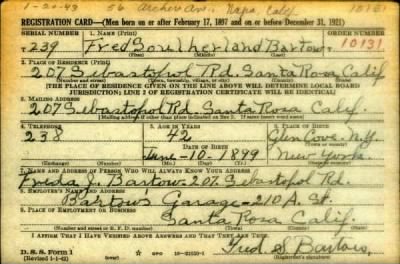 1-20-43 56 Archer Ave. Napa, Calif. 10131
REGISTRATION CARD—(Men born on or after February 17, 1897 and on or before December 31, 1921)
SERIAL NUMBER 1. NAME (Print) ORDER NUMBER
T 239 Fred Southerland Bartow 10131
(First) (Middle) (Last)
2. PLACE OF RESIDENCE (Print)
207 Sebastopol Rd. Santa Rosa Calif
(Number and street) (Town, township, village, or city) (County) (State)
[THE PLACE OF RESIDENCE GIVEN ON THE LINE ABOVE WILL DETERMINE LOCAL BOARD
JURISDICTION; LINE 2 OF REGISTRATION CERTIFICATE WILL BE IDENTICAL]
3. MAILING ADDRESS
207 Sebastopol Rd, Santa Rosa Calif.
(Mailing address if other than place indicated on line 2. If same insert word same)
4. TELEPHONE 5. AGE IN YEARS 6. PLACE OF BIRTH
238 42 Glen Cove, N.Y.
DATE OF BIRTH (Town or county)
June-10-1899 New York.
(Exchange) (Number) (Mo.) (Day) (Yr.) (State or country)
7. NAME AND ADDRESS OF PERSON WHO WILL ALWAYS KNOW YOUR ADDRESS
Freda Bartow 207 Sebastopol Rd.
8. EMPLOYER'S NAME AND ADDRESS
Bartows Garage-210 A. St.
9. PLACE OF EMPLOYMENT OR BUSINESS
Santa Rosa Calif.
(Number and street or R. F. D. number) (Town) (County) (State)
I AFFIRM THAT I HAVE VERIFIED ABOVE ANSWERS AND THAT THEY ARE TRUE.
D. S. S. Form 1
(Revised 1-1-42) GPO 16-21630-1 Fred S Bartow,